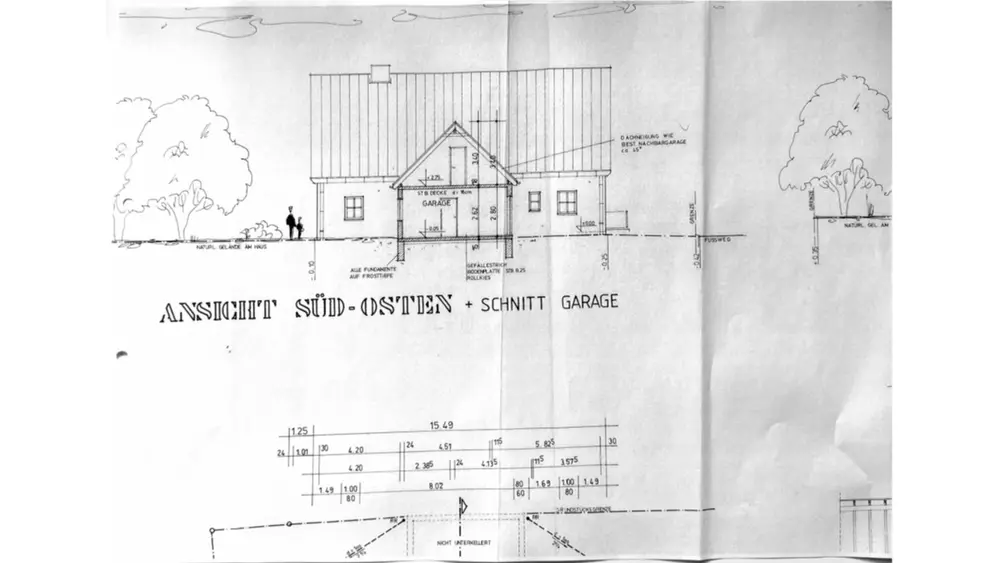 DACHNEIGUNG WIE
BEST NACHBARGARAGE
ca 15°
3.40
+2.75
STB DECKE d= 18cm
GARAGE
2.62
2.80
GRENZE
GRENZE
±0.00
FUSSWEG
NATÜRL. GELÄNDE AM HAUS
NATÜRL. GEL. AM
-0.10
-0.25
-0.42
+0.35
ALLE FUNDAMENTE
AUF FROSTTIEFE
GEFÄLLESTRICH
BODENPLATTE STB B.25
ROLLKIES
ANSICHT SÜD-OSTEN + SCHNITT GARAGE
1.25
15.49
24
1.01
30
4.20
24
4.51
11⁵
5.82⁵
30
4.20
2.38⁵
24
4.13⁵
11⁵
3.57⁵
1.49
1.00
80
8.02
80
60
1.69
1.00
80
1.49
GRUNDSTÜCKSGRENZE
RR
RR
NICHT UNTERKELLERT